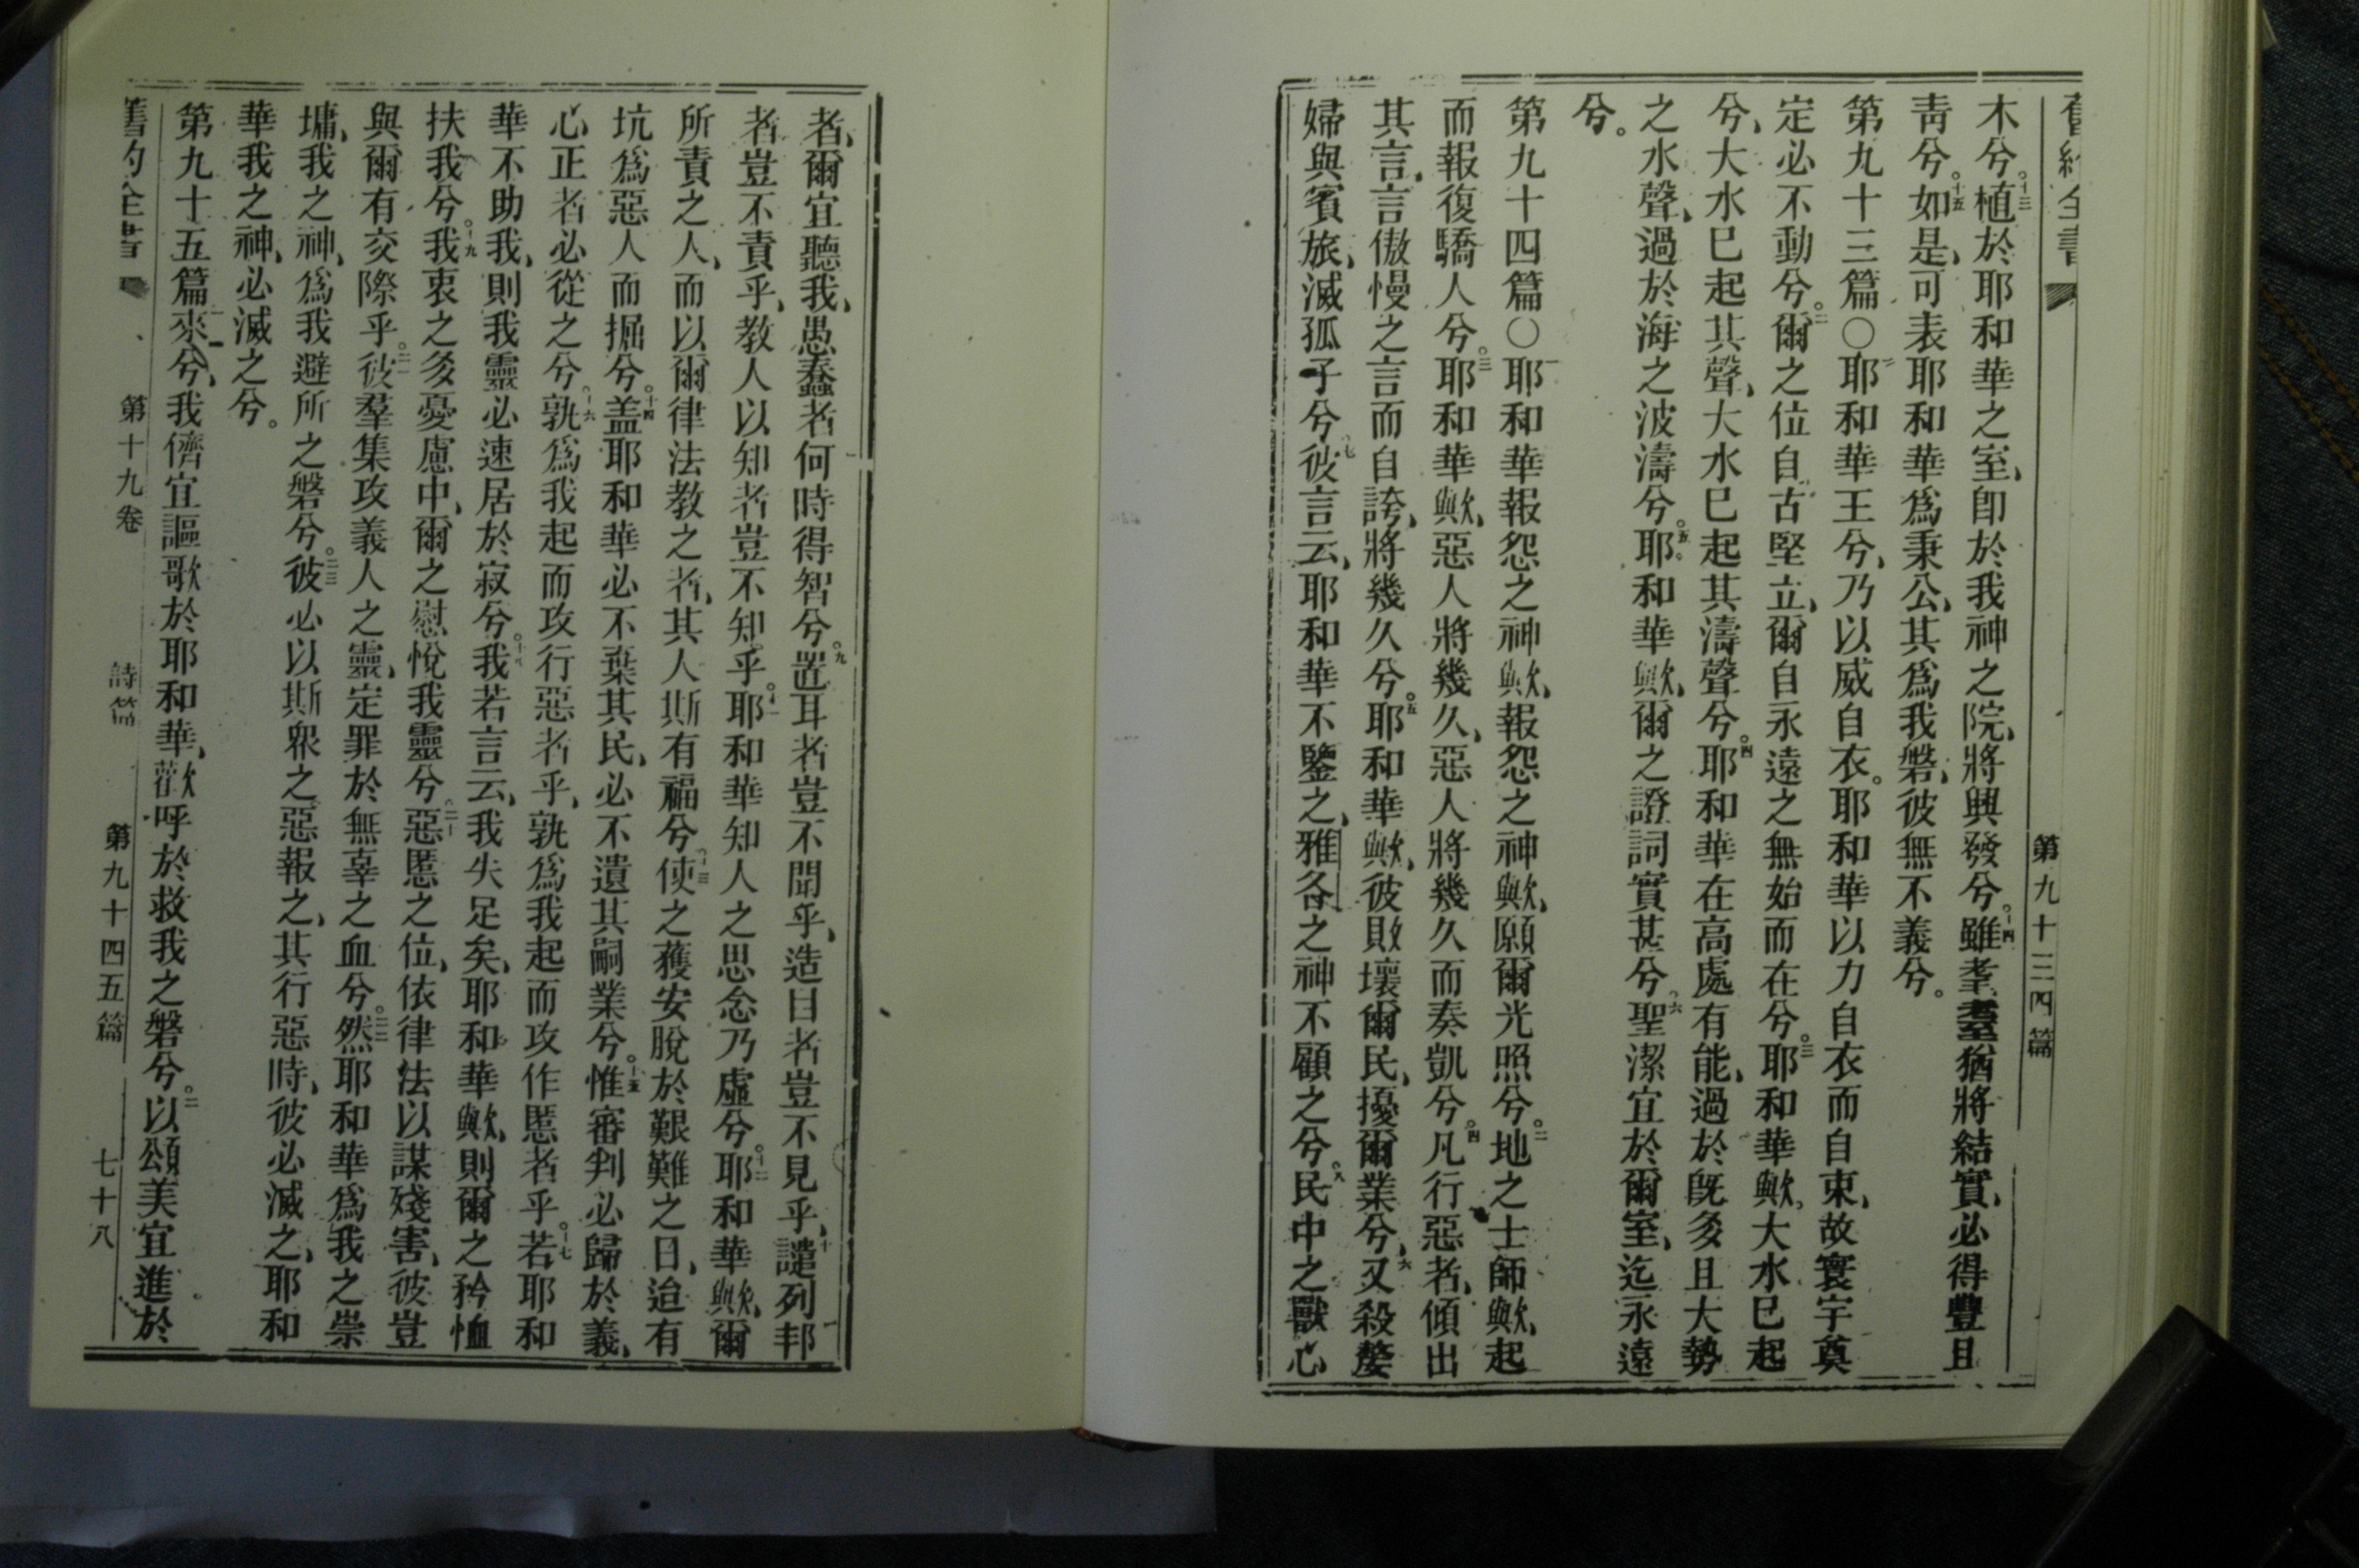 舊約全書 第九十三四篇
木兮。十三植於耶和華之室、卽於我神之院、將興發兮。十四雖耄耋猶將結實、必得豐且
靑兮。十五如是、可表耶和華爲秉公、其爲我磐、彼無不義兮。
第九十三篇〇一耶和華王兮、乃以威自衣。耶和華以力自衣而自束、故寰宇奠
定必不動兮。二爾之位自古堅立、爾自永遠之無始而在兮。三耶和華歟、大水已起
兮、大水已起其聲、大水已起其濤聲兮。四耶和華在高處有能、過於旣多且大勢
之水聲、過於海之波濤兮。五耶和華歟、爾之證詞實甚兮。六聖潔宜於爾室、迄永遠
兮。
第九十四篇〇一耶和華報怨之神歟、報怨之神歟、願爾光照兮。二地之士師歟、起
而報復驕人兮。三耶和華歟、惡人將幾久、惡人將幾久而奏凱兮。四凡行惡者、傾出
其言、言傲慢之言而自誇、將幾久兮。五耶和華歟、彼敗壞爾民、擾爾業兮、六又殺嫠
婦與賓旅、滅孤子兮。七彼言云、耶和華不鑒之、雅各之神不顧之兮。八民中之獸心
者、爾宜聽我、愚蠢者何時得智兮。九置耳者豈不聞乎、造目者豈不見乎、十譴列邦
者豈不責乎、教人以知者豈不知乎。十一耶和華知人之思念乃虛兮。十二耶和華歟、爾
所責之人、而以爾律法教之者、其人斯有福兮。十三使之獲安脫於艱難之日、迨有
坑爲惡人而掘兮。十四盖耶和華必不棄其民、必不遺其嗣業兮。十五惟審判必歸於義、
心正者必從之兮。十六孰爲我起而攻行惡者乎、孰爲我起而攻作慝者乎。十七若耶和
華不助我、則我靈必速居於寂兮。十八我若言云、我失足矣、耶和華歟、則爾之矜恤
扶我兮。十九我衷之多憂慮中、爾之慰悅我靈兮。二十惡慝之位、依律法以謀殘害、彼豈
與爾有交際乎。二一彼羣集攻義人之靈、定罪於無辜之血兮。二二然耶和華爲我之崇
墉、我之神、爲我避所之磐兮。二三彼必以斯衆之惡報之、其行惡時、彼必滅之、耶和
華我之神、必滅之兮。
第九十五篇一來兮、我儕宜謳歌於耶和華、歡呼於救我之磐兮。二以頌美宜進於
舊約全書 第十九卷 詩篇 第九十四五篇 七十八